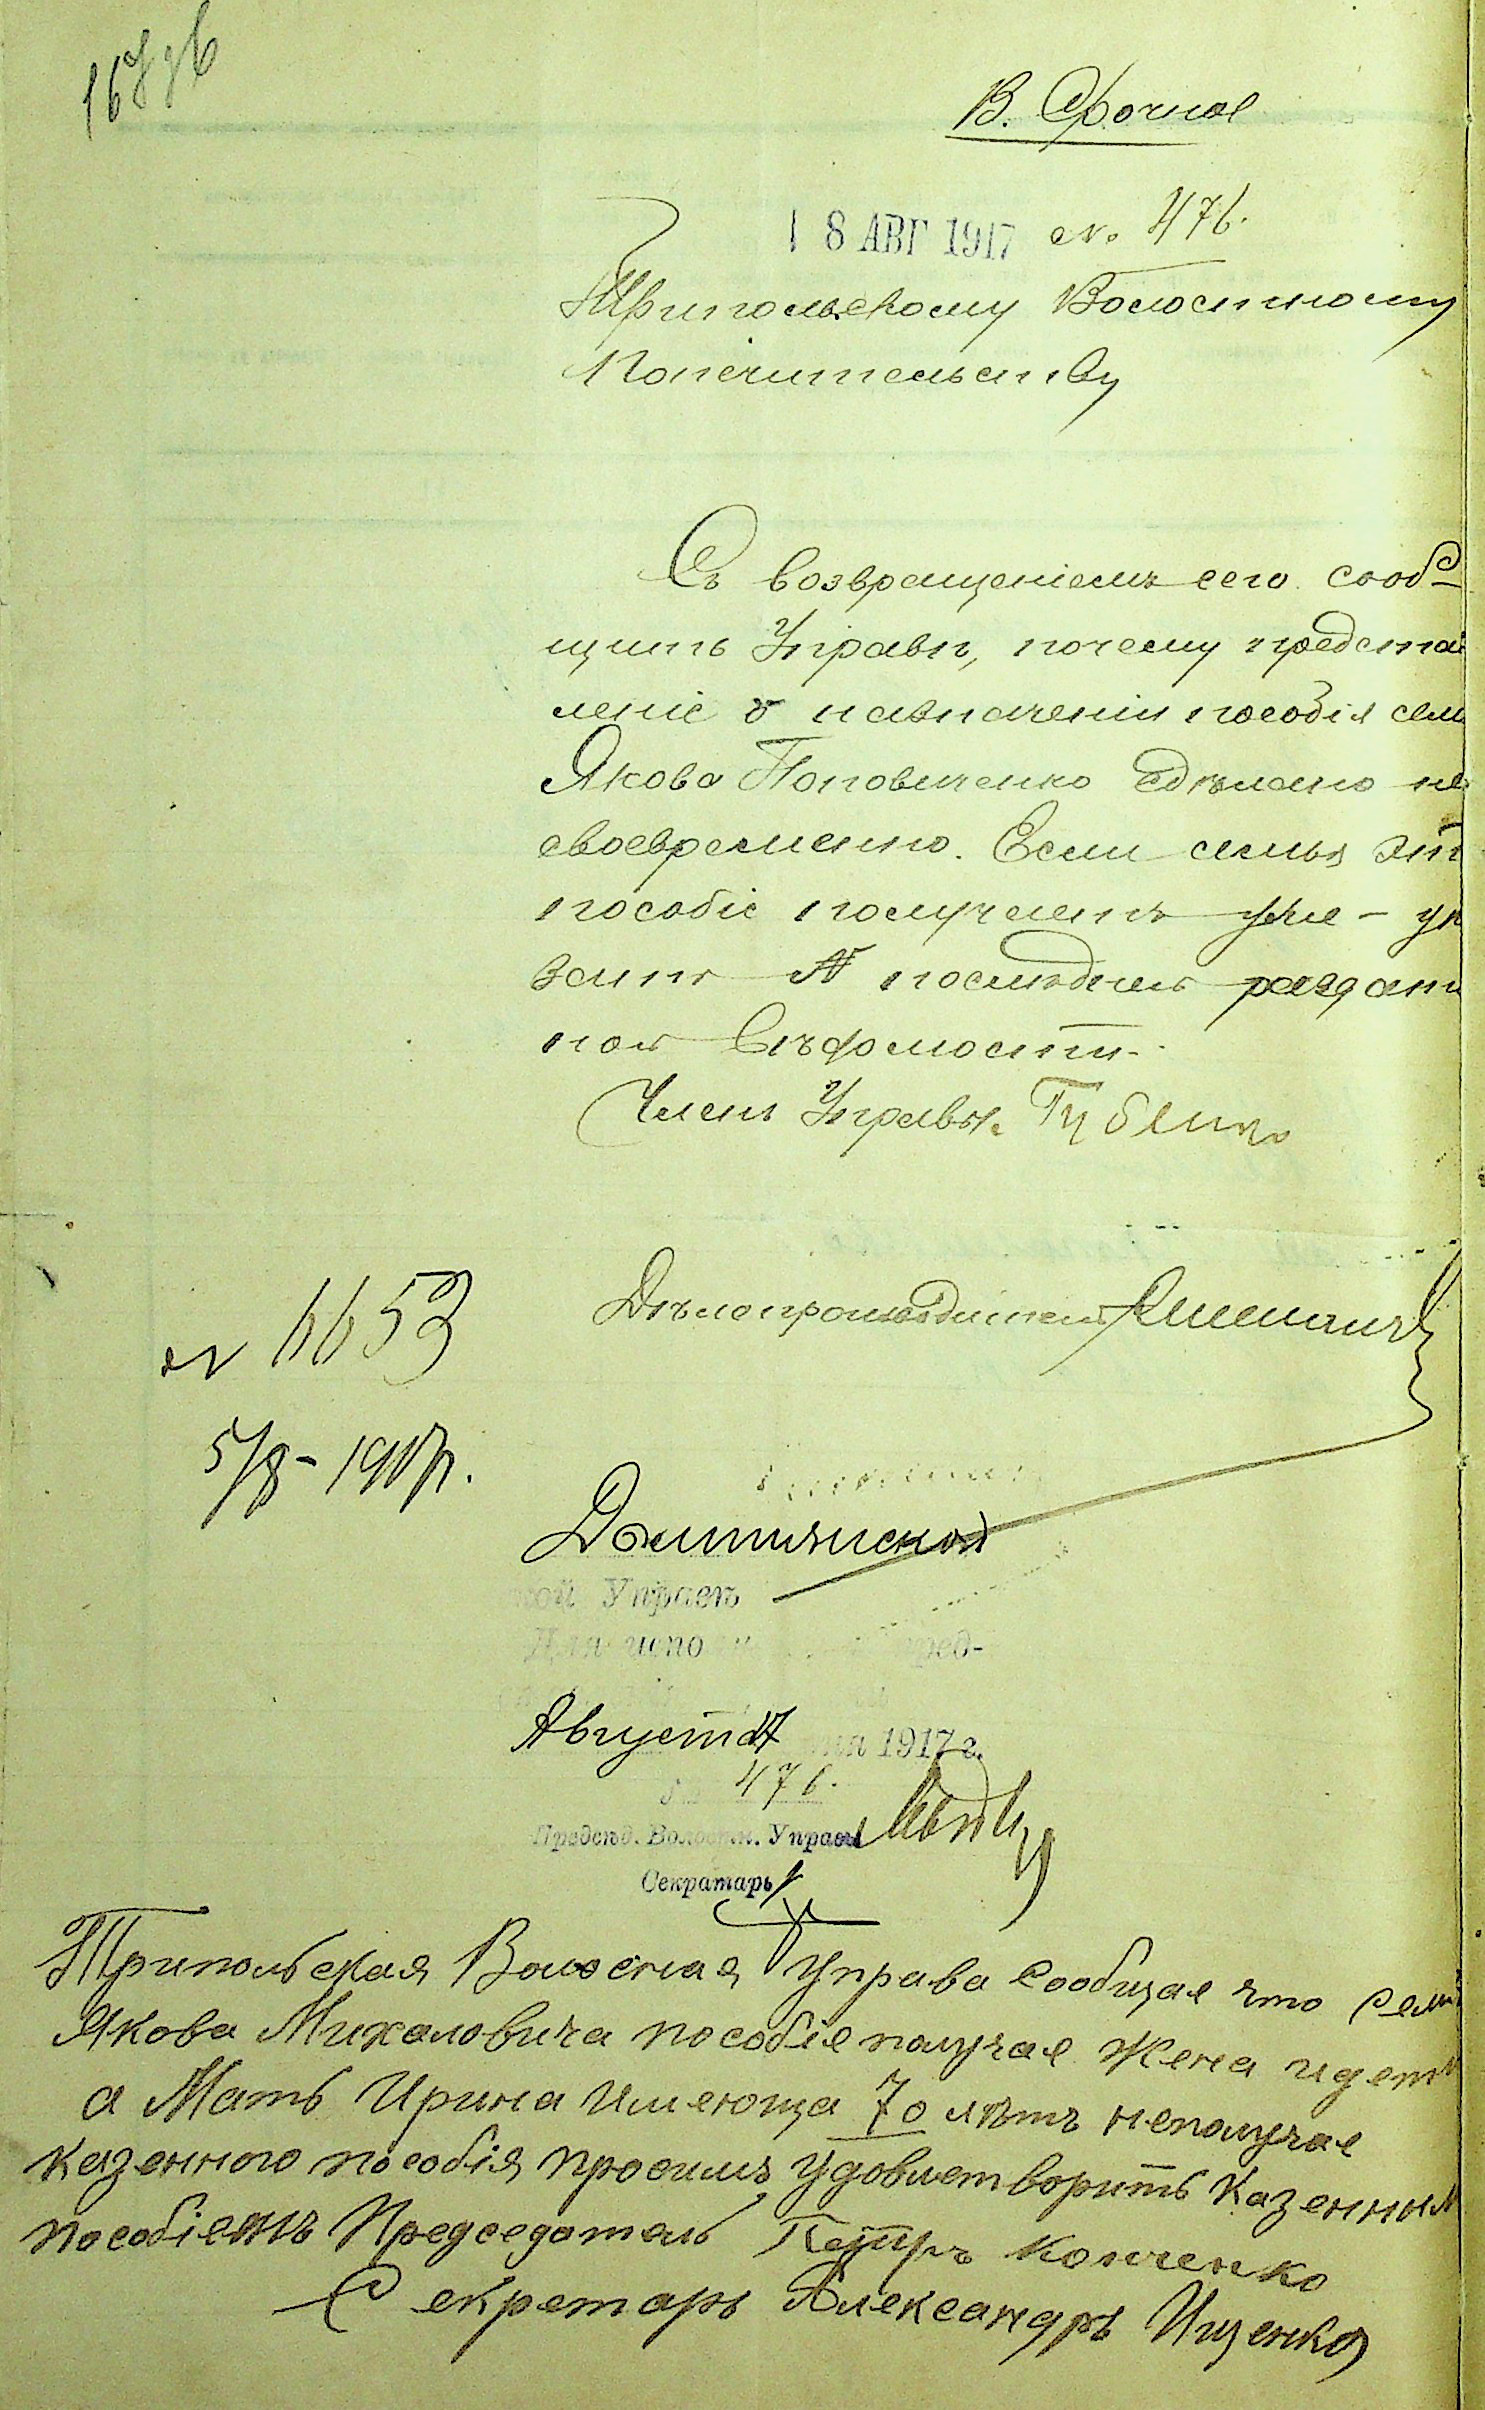 В. Срочное
18 АВГ 1917 № 476.
Трипольскому Волостному
Попечительству
Съ возвращеніемъ сего сооб-
щить Управѣ, почему предста
леніе о назначеніи пособія сем
Якова Поповиченко сдѣлано не
своевременно. Если семья эт
пособіе получаетъ уже - ук
зать № послѣдней раздат
ной Вѣдомости.
Членъ Управы Губенко
Дѣлопроизводитель
№ 6653
5/8 - 1917 г.
кой Управѣ
Для испо
ред-
Августа 17 дня 1917 г.
№ 476.
Предсѣд. Волостн. Управы
Секратарь
Трипольская Волосная Управа Сообщае что Сем
Якова Михаловича пособіе получае Жена идети
а Мать Ирина имеюща 70 лѣтъ неполучае
казенного пособія просимъ удовлетворить Казенным
пособіемъ Председатель Петръ Конченко
Секретарь Александръ Ищенко